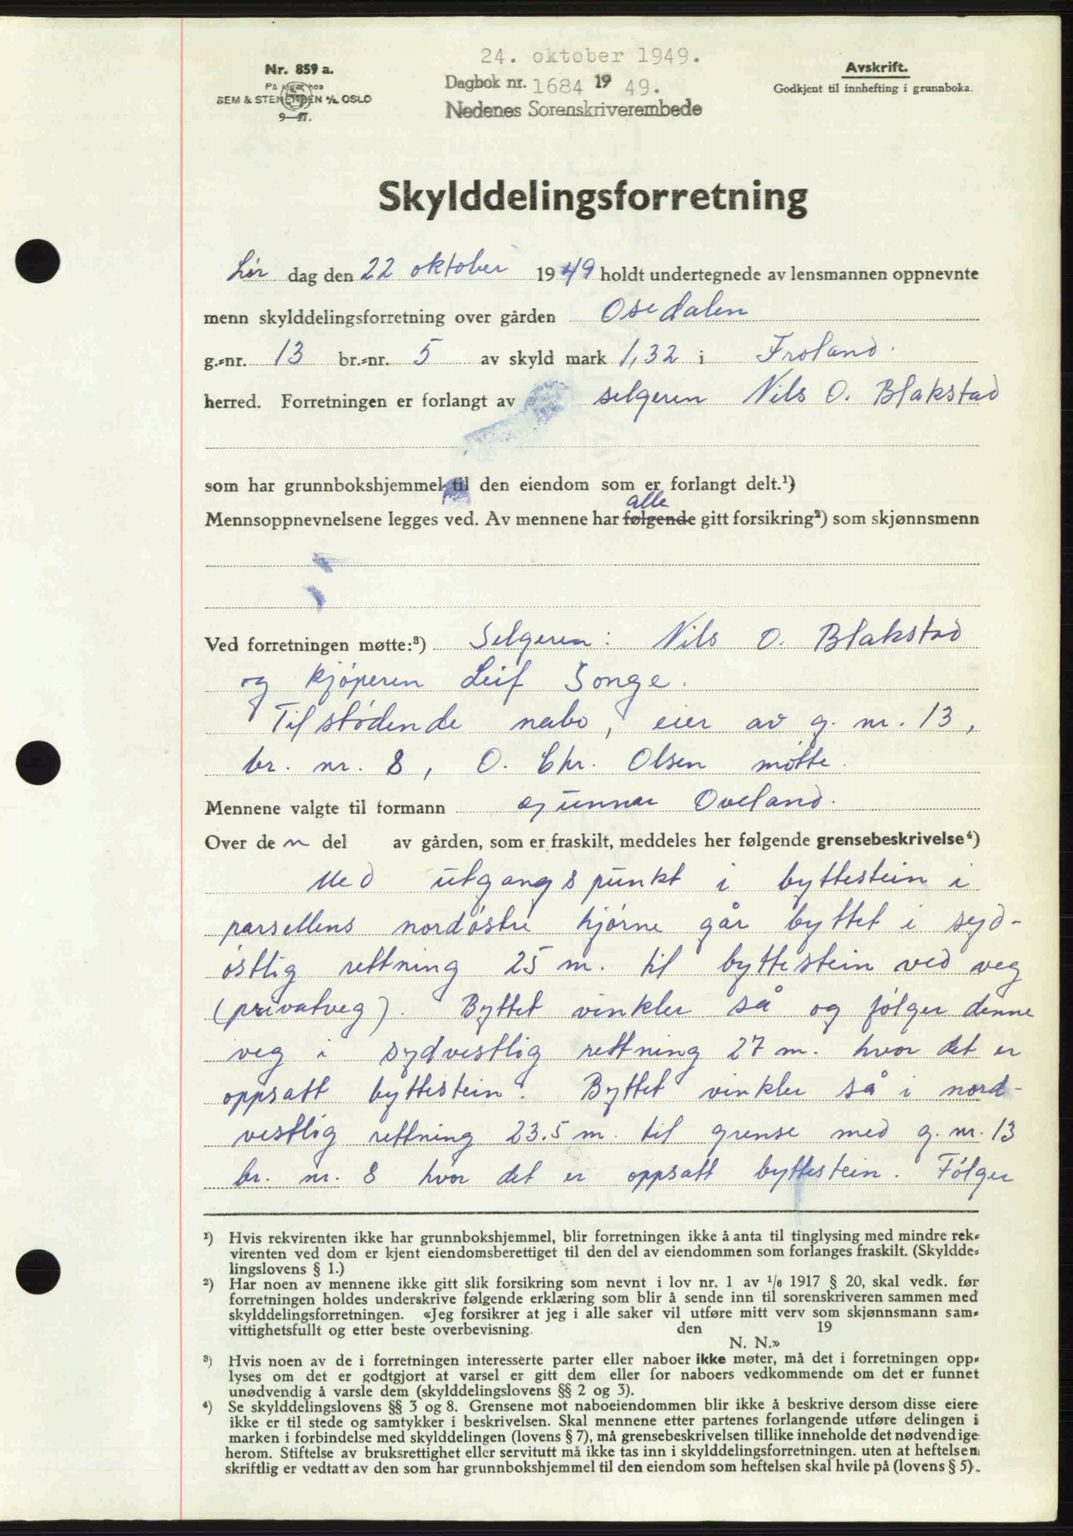 24. oktober 1949.
Nr. 859 a.
På lager hos
SEM & STENERSEN A/S OSLO
9—47.
Dagbok nr. 1684 19 49.
Nedenes Sorenskriverembede
Avskrift.
Godkjent til innhefting i grunnboka.
Skylddelingsforretning
Lør dag den 22 oktober 1949 holdt undertegnede av lensmannen oppnevnte
menn skylddelingsforretning over gården Osedalen
g.-nr. 13 br.-nr. 5 av skyld mark 1,32 i Froland.
herred. Forretningen er forlangt av selgeren Nils O. Blakstad
som har grunnbokshjemmel til den eiendom som er forlangt delt.¹)
alle
Mennsoppnevnelsene legges ved. Av mennene har følgende gitt forsikring²) som skjønnsmenn
Ved forretningen møtte:³) Selgeren: Nils O. Blakstad
og kjøperen Leif Songe.
Tilstødende nabo, eier av g. nr. 13,
br. nr. 8, O. Chr. Olsen møtte.
Mennene valgte til formann Gunnar Oveland.
Over de n del av gården, som er fraskilt, meddeles her følgende grensebeskrivelse⁴)
Med utgangspunkt i byttestein i
parsellens nordøstre hjørne går byttet i syd-
østlig rettning 25 m. til byttestein ved veg
(privatveg). Byttet vinkler så og følger denne
veg i sydvestlig rettning 27 m. hvor det er
oppsatt byttestein. Byttet vinkler så i nord-
vestlig rettning 23.5 m. til grense med g. nr. 13
br. nr. 8 hvor det er oppsatt byttestein. Følger
¹) Hvis rekvirenten ikke har grunnbokshjemmel, blir forretningen ikke å anta til tinglysing med mindre rek-
virenten ved dom er kjent eiendomsberettiget til den del av eiendommen som forlanges fraskilt. (Skyldde-
lingslovens § 1.)
²) Har noen av mennene ikke gitt slik forsikring som nevnt i lov nr. 1 av 1/6 1917 § 20, skal vedk. før
forretningen holdes underskrive følgende erklæring som blir å sende inn til sorenskriveren sammen med
skylddelingsforretningen. «Jeg forsikrer at jeg i alle saker vil utføre mitt verv som skjønnsmann sam-
vittighetsfullt og etter beste overbevisning. den 19
N. N.»
³) Hvis noen av de i forretningen interesserte parter eller naboer ikke møter, må det i forretningen opp-
lyses om det er godtgjort at varsel er gitt dem eller for naboers vedkommende om det er funnet
unødvendig å varsle dem (skylddelingslovens §§ 2 og 3).
⁴) Se skylddelingslovens §§ 3 og 8. Grensene mot naboeiendommen blir ikke å beskrive dersom disse eiere
ikke er til stede og samtykker i beskrivelsen. Skal mennene etter partenes forlangende utføre delingen i
marken i forbindelse med skylddelingen (lovens § 7), må grensebeskrivelsen tillike inneholde det nødvendige
herom. Stiftelse av bruksrettighet eller servitutt må ikke tas inn i skylddelingsforretningen. uten at heftelsen
skriftlig er vedtatt av den som har grunnbokshjemmel til den eiendom som heftelsen skal hvile på (lovens § 5).